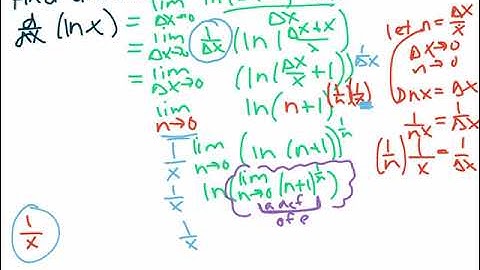 d/dx (ln x) = lim Δx→0
= lim Δx→0 1/Δx (ln (Δx+x)/x)
= lim Δx→0 (ln (Δx/x + 1))^(1/Δx)
lim n→0 ln(n+1)^((1/n)(1/x))
1/x lim n→0 (ln (n+1))^(1/n)
1/x ln(lim n→0 (n+1)^(1/n))
a def of e
1/x
1/x
let n = Δx/x
Δx→0
n→0
nx = Δx
1/nx = 1/Δx
(1/n) 1/x = 1/Δx